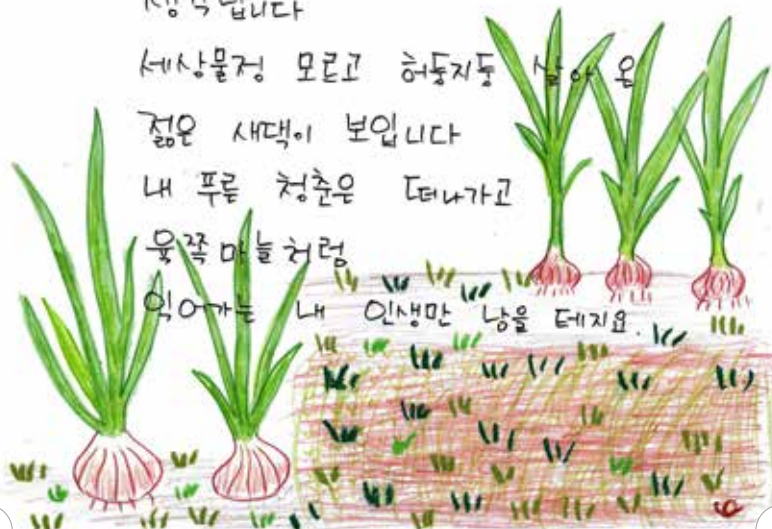 생각합니다
세상물정 모르고 허둥지둥 살아 온
젊은 새댁이 보입니다
내 푸른 청춘은 떠나가고
육쪽마늘처럼
익어가는 내 인생만 남을 테지요.